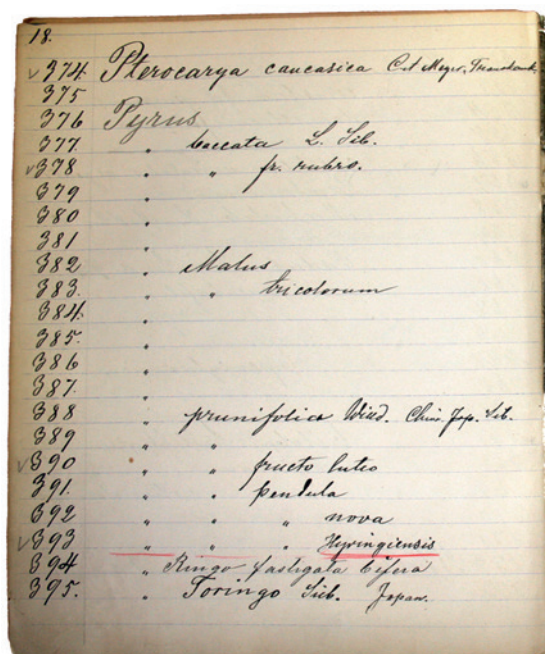 18.
√374 Pterocarya caucasica C.A. Meyer.
375
376 Pyrus
377. " baccata L. Sib.
√378 " " fr. rubro.
379 "
380 "
381 "
382 " Malus
383. " " tricolorum
384. "
385. "
386 "
387. "
388 " prunifolia Willd. Chin. Jap. Sib.
389 " "
√390 " " fructo luteo
391. " " pendula
392 " " " nova
√393 " " " Hyringiensis
394 " Ringo fastigata bifera
395. " Toringo Sieb. Japan.